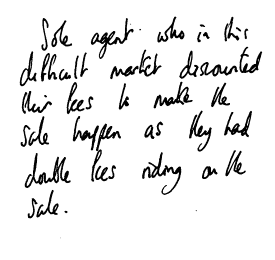 Sole agent who in this
difficult market discounted
their fees to make the
sale happen as they had
double fees riding on the
sale.